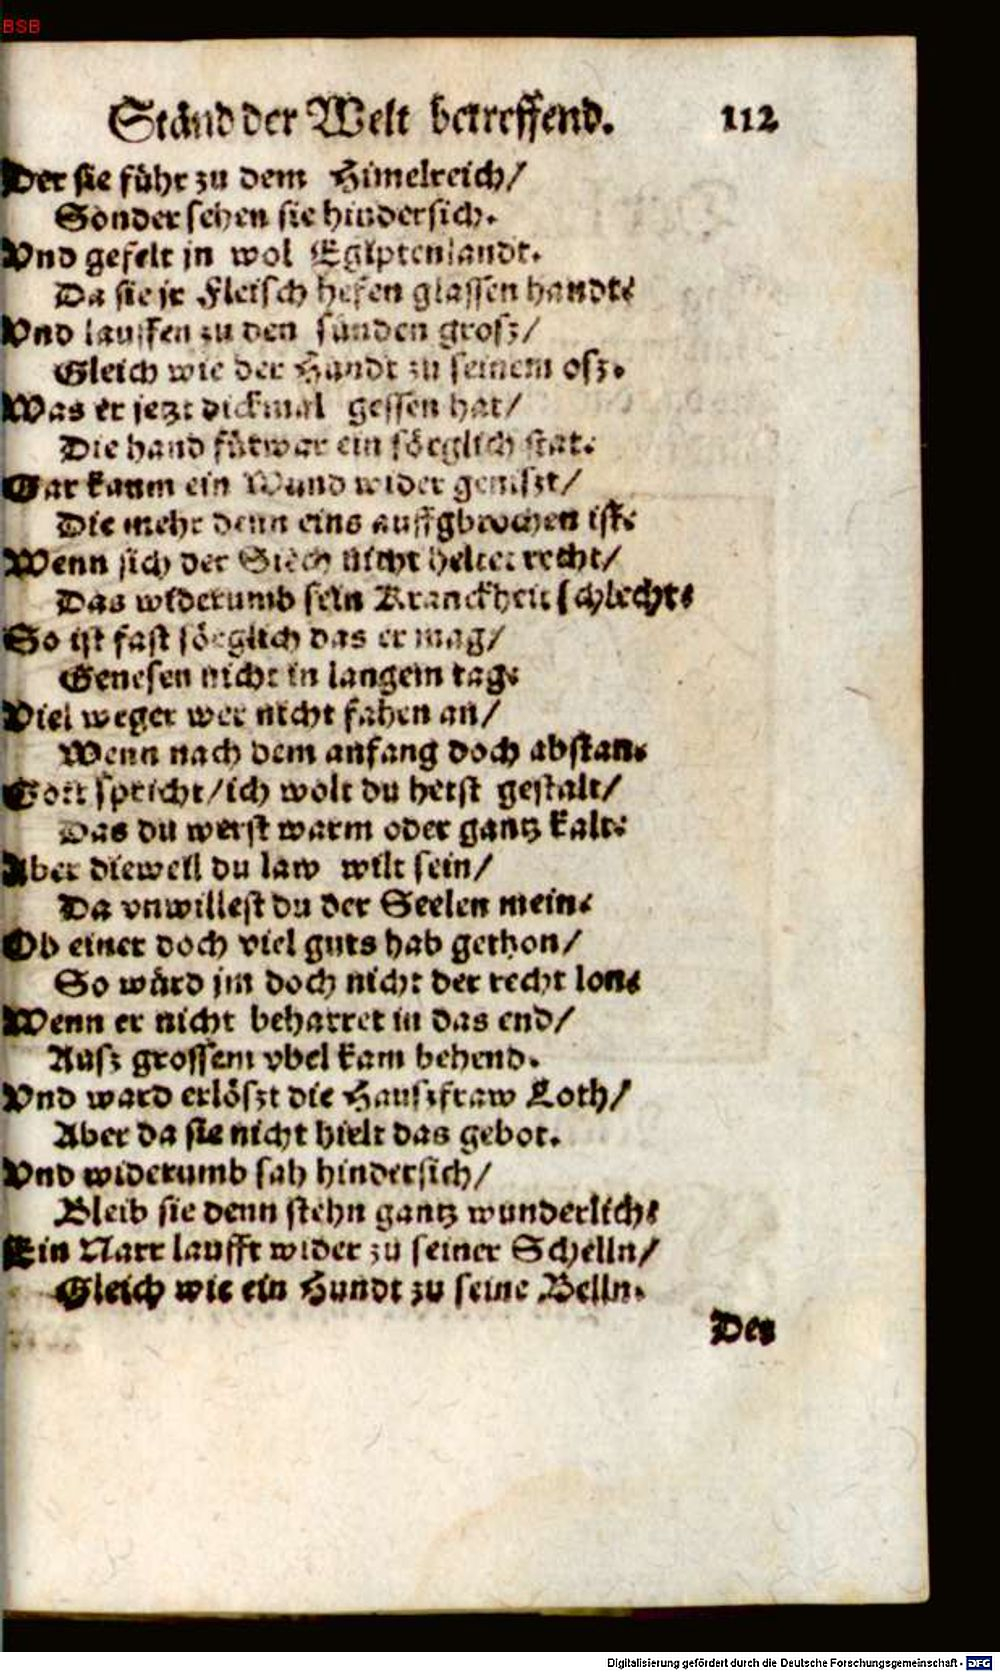 BSB
Ständ der Welt betreffend. 112
Der sie führ zu dem Himelreich/
Sonder sehen sie hindersich.
Vnd gefelt jn wol Egiptenlandt.
Da sie jr Fleisch hefen glassen handt.
Vnd lauffen zu den sünden grosz/
Gleich wie der Hundt zu seinem osz.
Was er jetzt dickmal gessen hat/
Die hand fürwar ein sörglich stat.
Gar kaum ein Wund wider geniszt/
Die mehr denn eins auffgbrochen ist.
Wenn sich der Siech nicht heltet recht/
Das widerumb sein Kranckheit schlecht.
So ist fast sörglich das er mag/
Genesen nicht in langem tag.
Viel weger wer nicht fahen an/
Wenn nach dem anfang doch abstan.
Gott spricht/ich wolt du hetst gestalt/
Das du werst warm oder gantz kalt.
Aber dieweil du law wilt sein/
Da vnwillest du der Seelen mein.
Ob einer doch viel guts hab gethon/
So würd jm doch nicht der recht lon.
Wenn er nicht beharret in das end/
Ausz grossem vbel kam behend.
Vnd ward erlöszt die Hauszfraw Loth/
Aber da sie nicht hielt das gebot.
Vnd widerumb sah hindersich/
Bleib sie denn stehn gantz wunderlich.
Ein Narr laufft wider zu seiner Schelln/
Gleich wie ein Hundt zu seine Belln.
Der
Digitalisierung gefördert durch die Deutsche Forschungsgemeinschaft - DFG